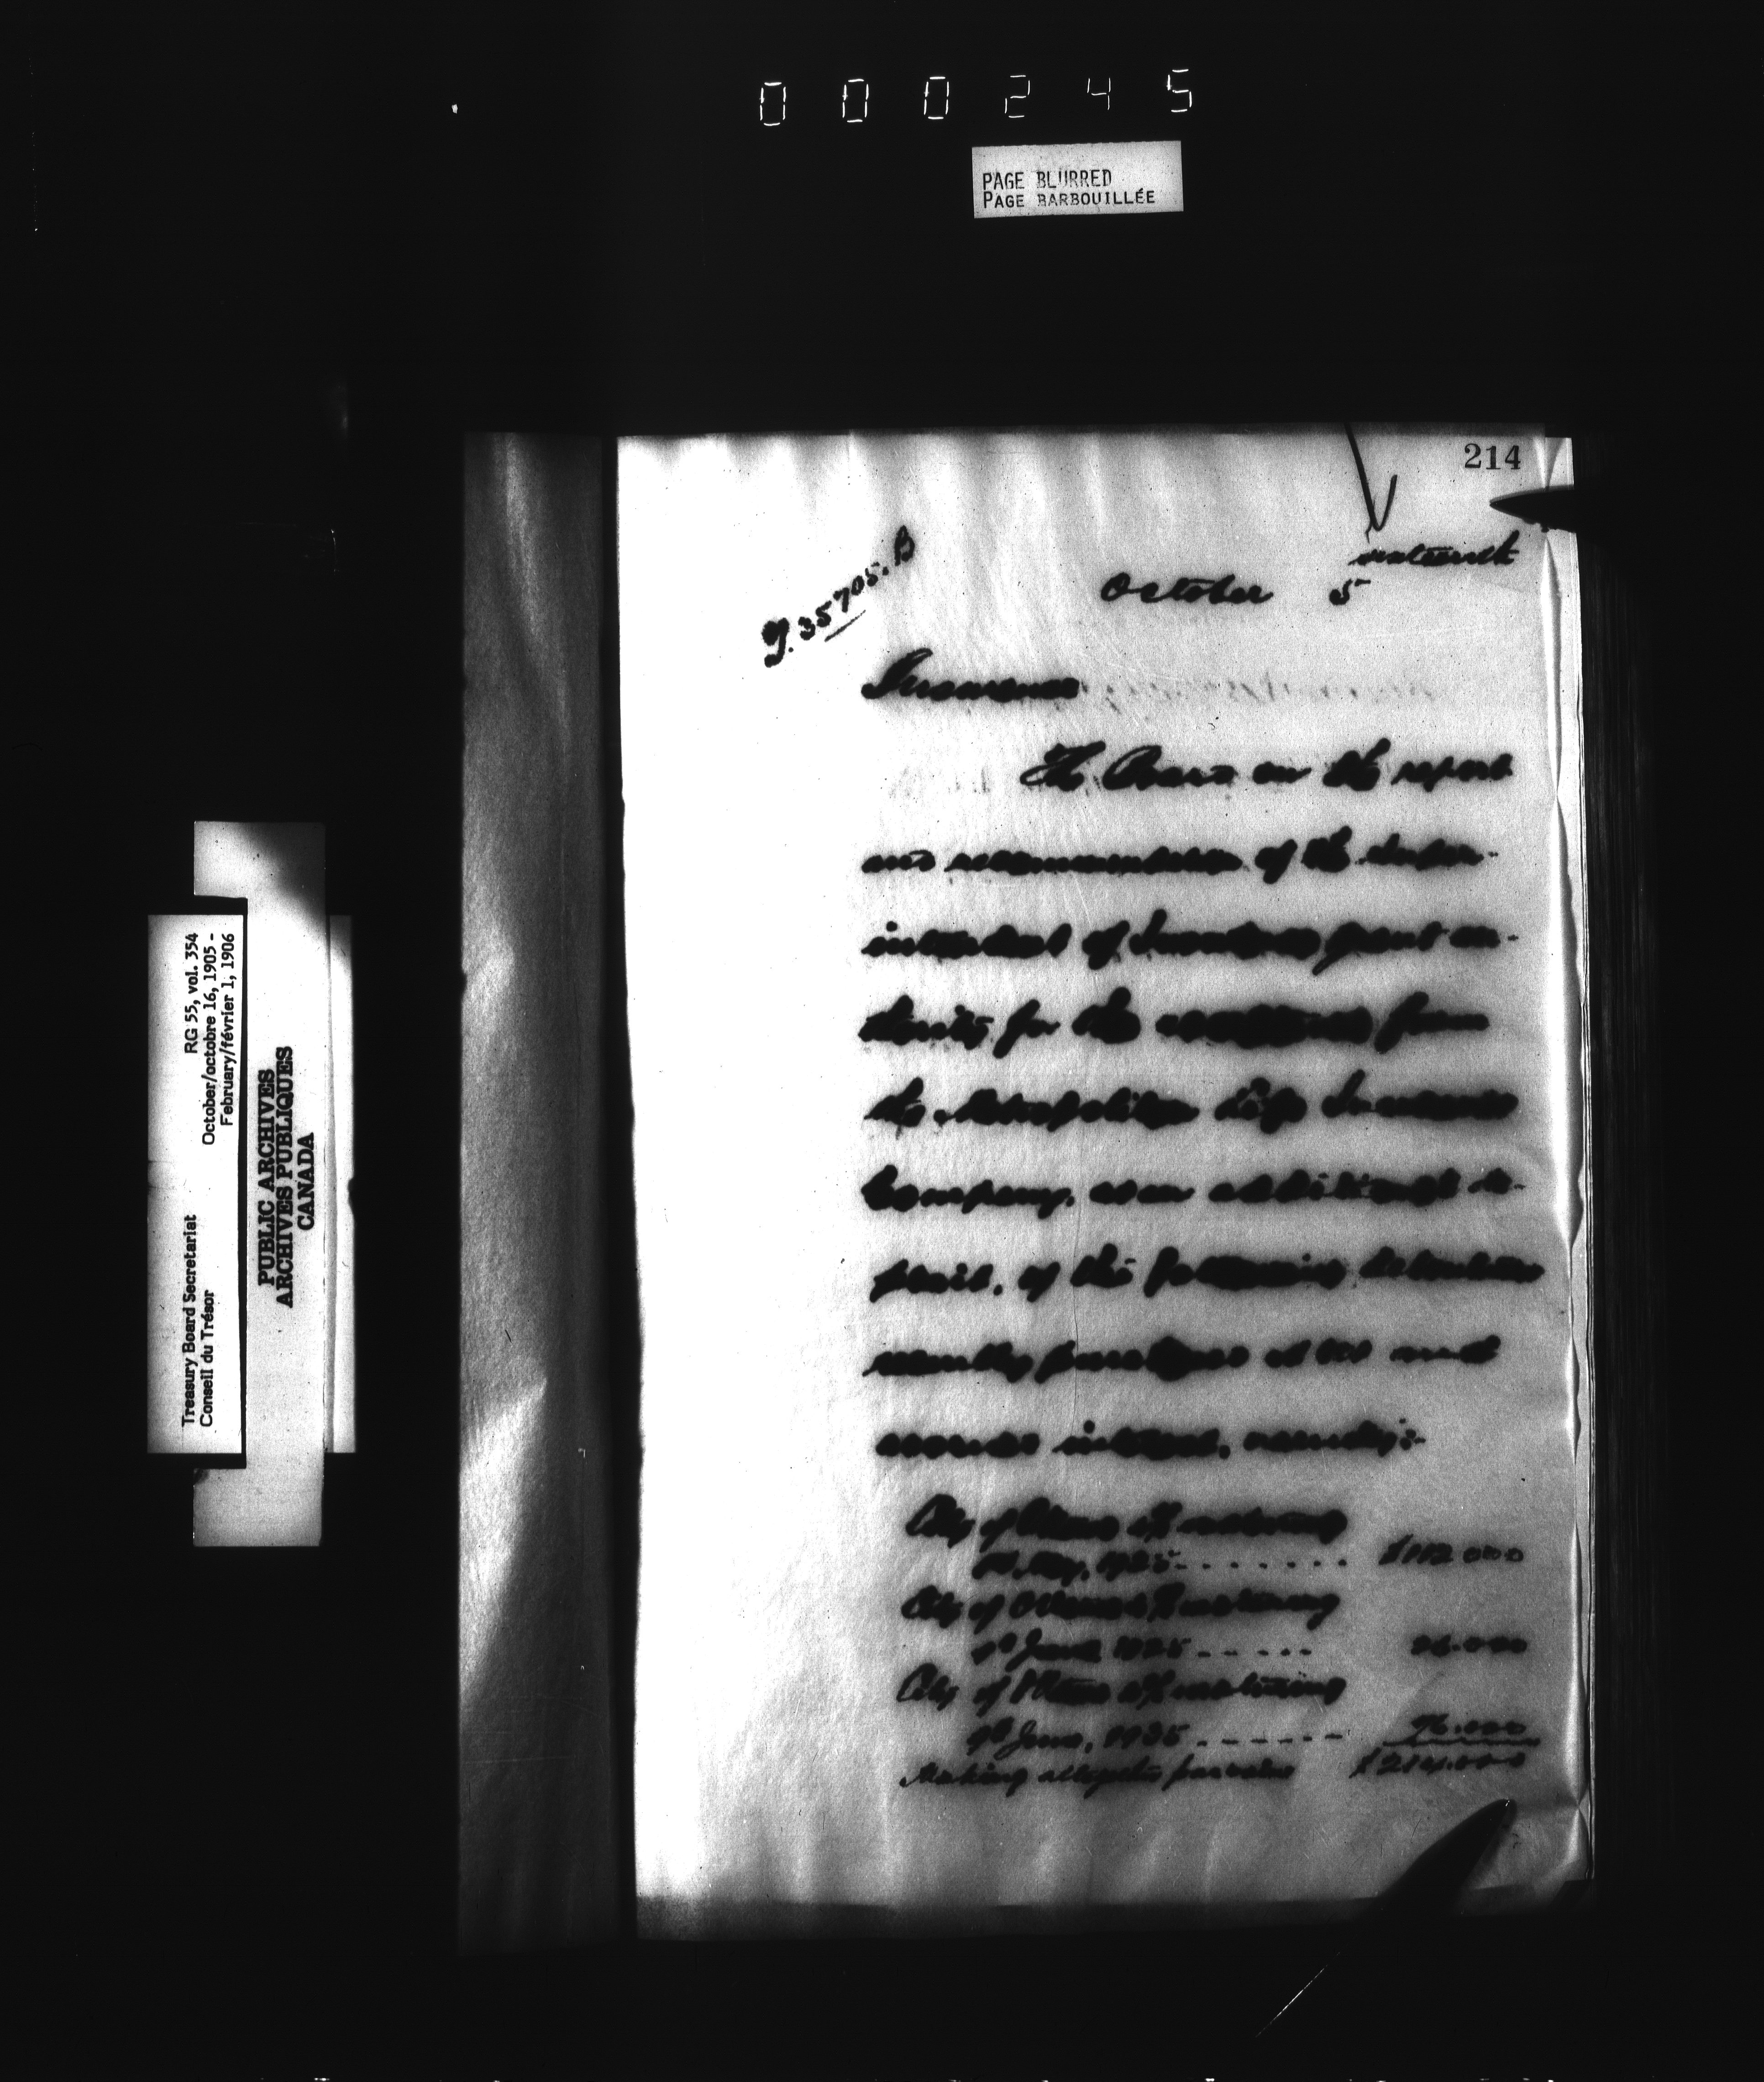 000245
PAGE BLURRED
PAGE BARBOUILLÉE
214
sixteenth
October 5
J. 35705. B
Insurance
The Board on the report
and recommendation of the Super-
intendent of Insurance grant au-
thority for the acceptance from
the Metropolitan Life Insurance
Company, as an additional de-
posit, of the following debentures
recently purchased at
accrued interest, namely:-
City of Ottawa maturing
May, 1925 - - - - - - - -
City of Ottawa maturing
June 1925 - - - - - -
City of Ottawa maturing
June, 1935 - - - - - - 
Making altogether par value $214.000
Treasury Board Secretariat RG 55, vol. 354
Conseil du Trésor October/octobre 16, 1905 -
February/février 1, 1906
PUBLIC ARCHIVES
ARCHIVES PUBLIQUES
CANADA